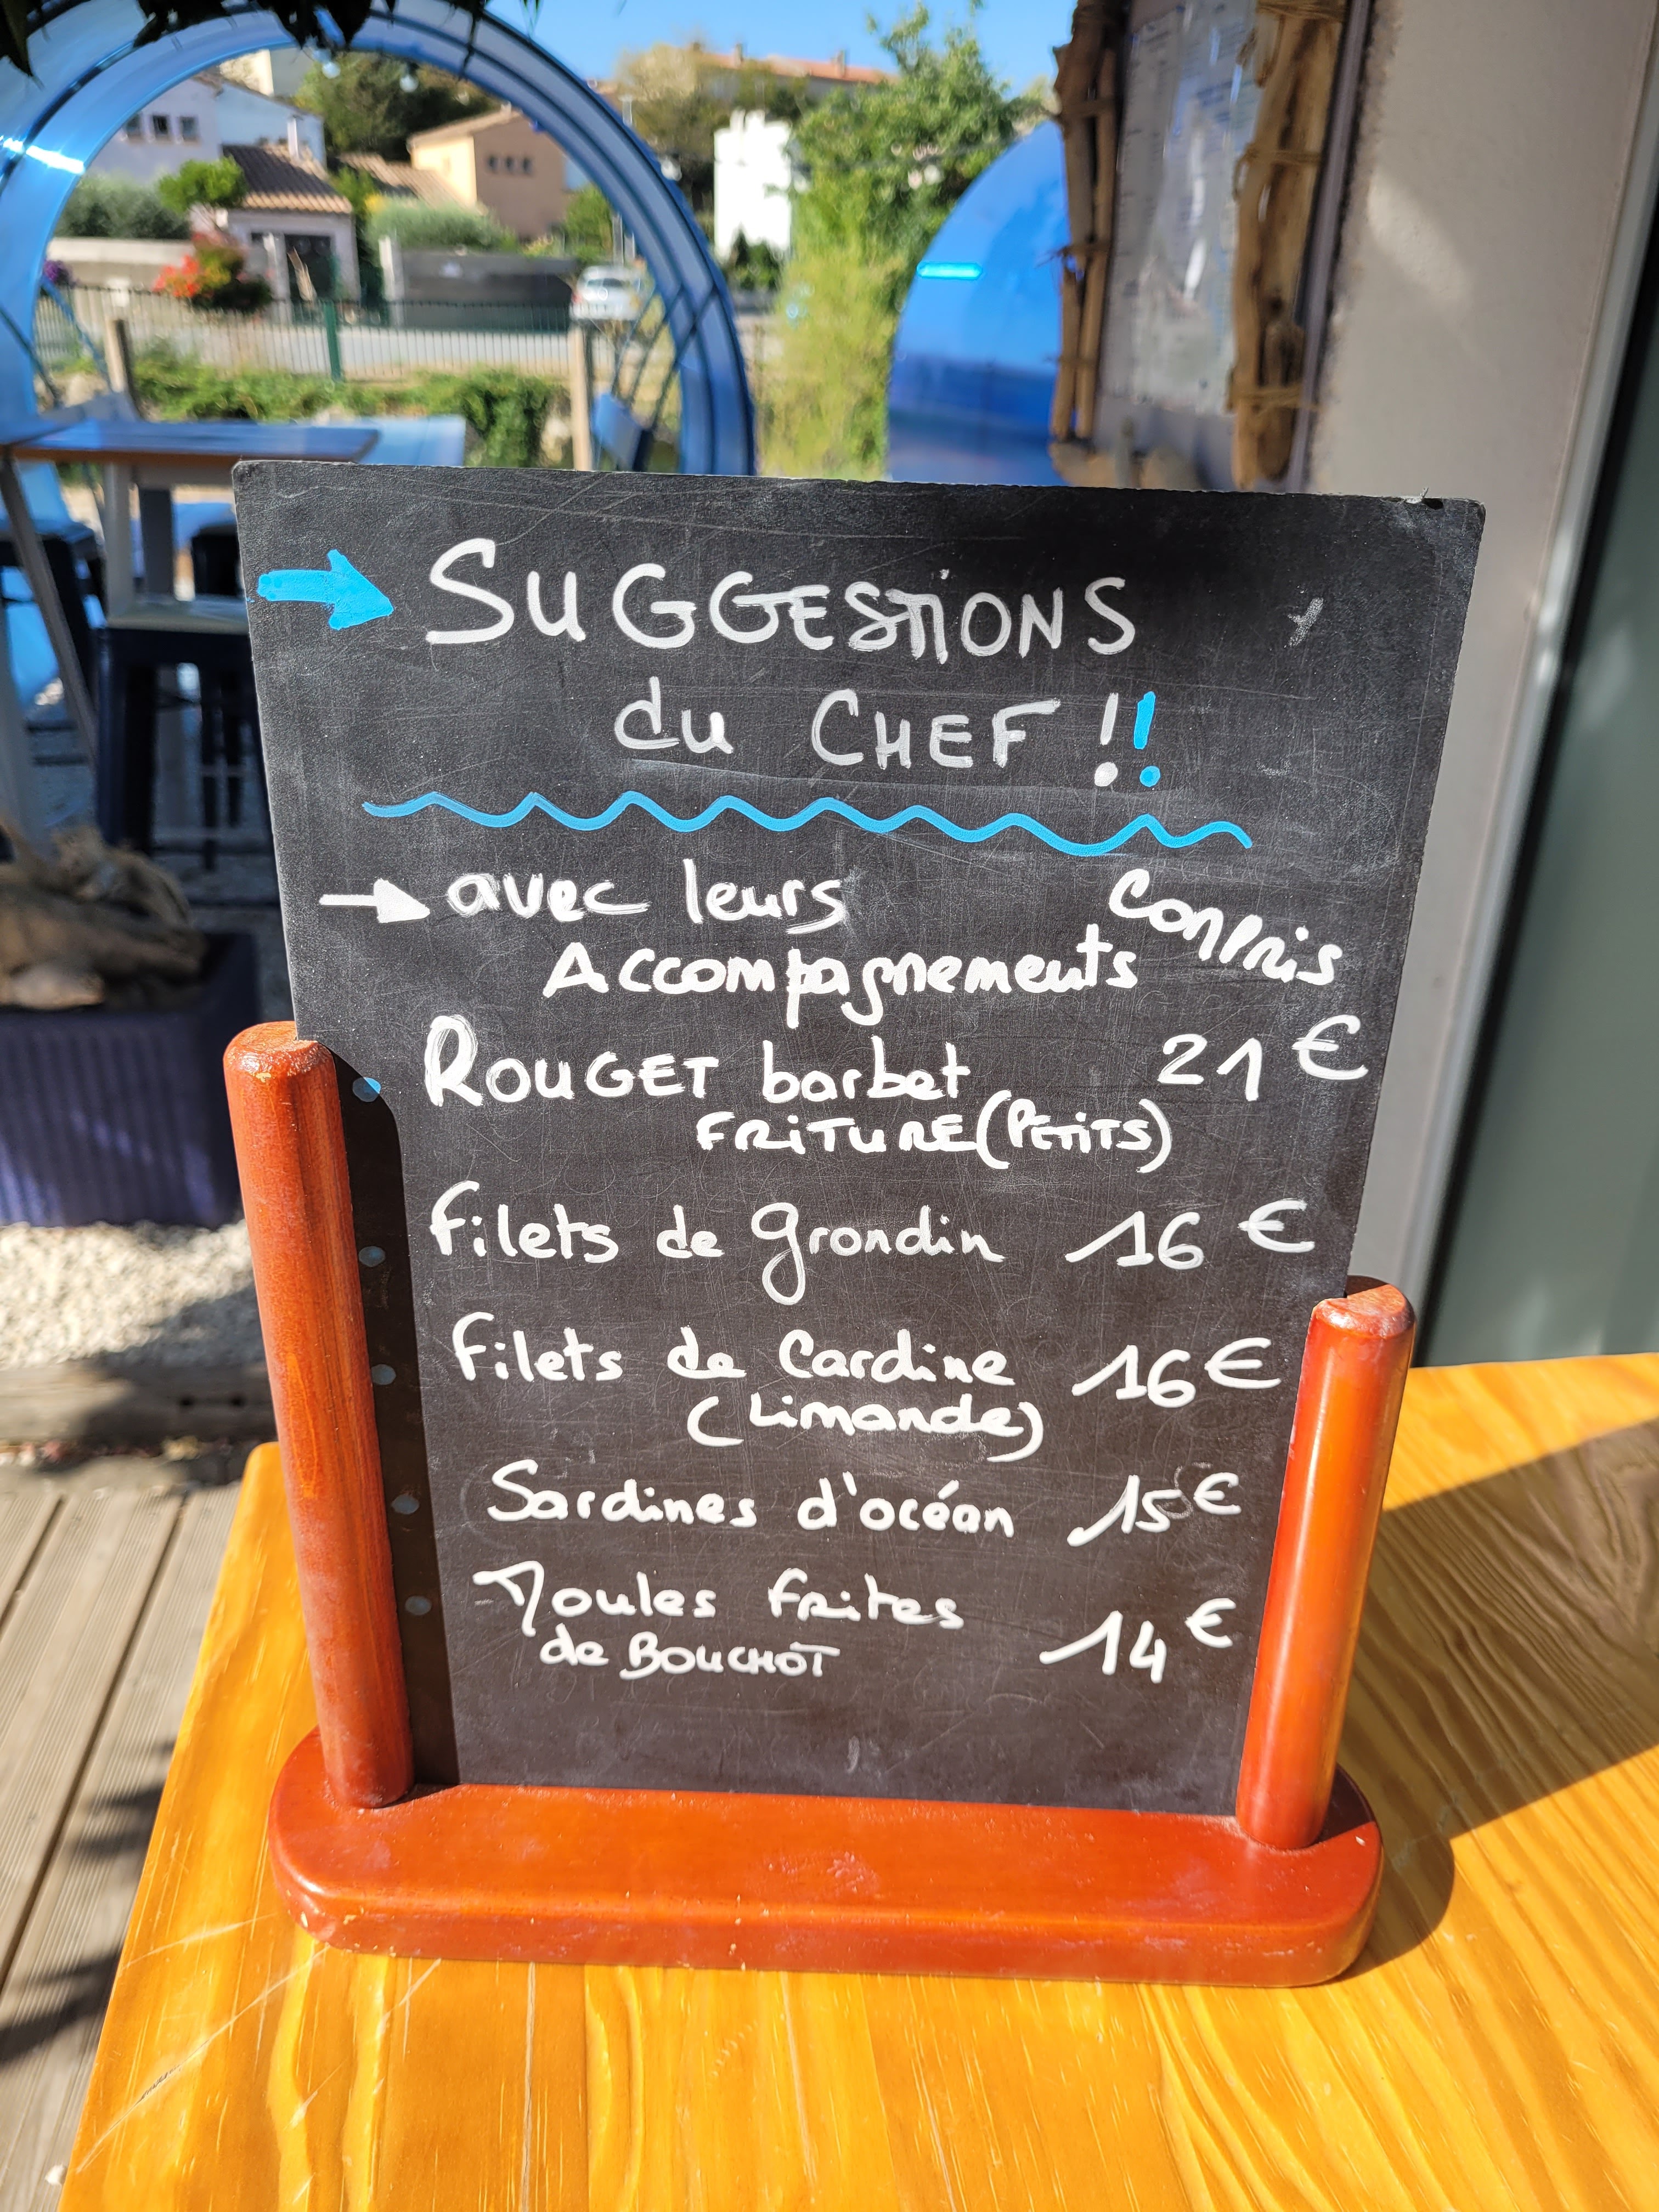 SUGGESTIONS
du CHEF !!
avec leurs Compris
Accompagnements
ROUGET barbet 21 €
FRITURE (PETITS)
Filets de grondin 16 €
Filets de Cardine 16 €
(Limande)
Sardines d'océan 15 €
Moules frites 14 €
de BOUCHOT